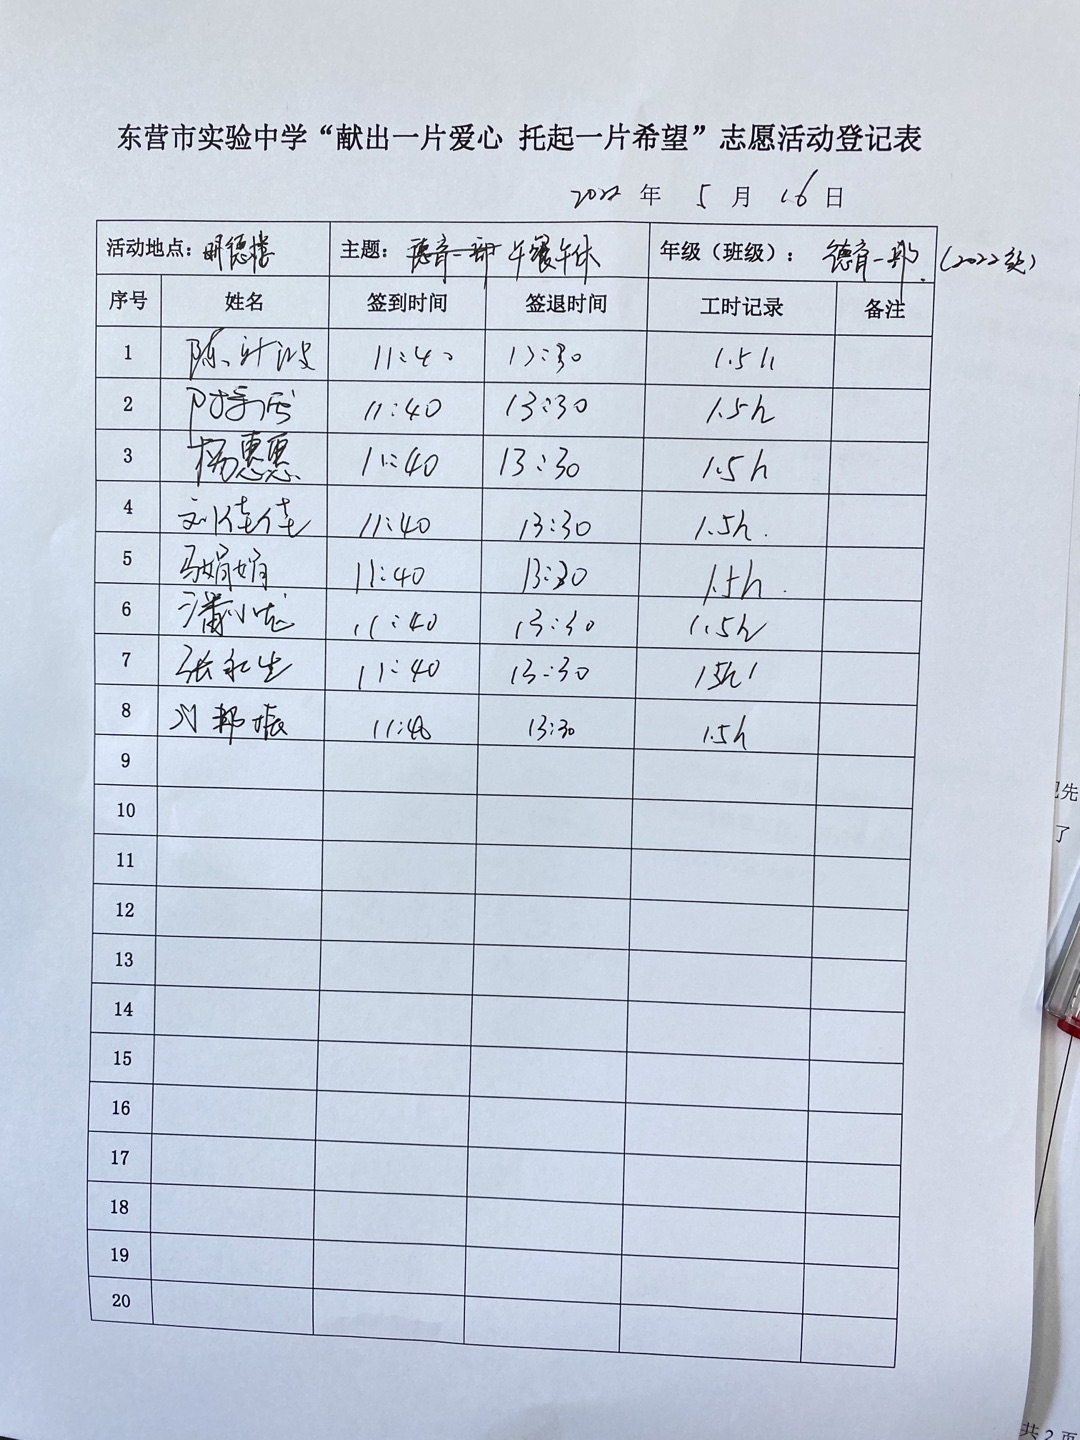 东营市实验中学“献出一片爱心 托起一片希望”志愿活动登记表
2022 年 5 月 16 日
活动地点：明德楼 主题：德育一部 午餐午休 年级（班级）：德育一部 (2022级)
序号 姓名 签到时间 签退时间 工时记录 备注
1 11:40 13:30 1.5h
2 11:40 13:30 1.5h
3 杨惠惠 11:40 13:30 1.5h
4 刘佳佳 11:40 13:30 1.5h.
5 马娟娟 11:40 13:30 1.5h.
6 潘小龙 11:40 13:30 1.5h
7 张永生 11:40 13:30 1.5h
8 刘邦振 11:40 13:30 1.5h
9
10
11
12
13
14
15
16
17
18
19
20
先
了
共 2 页